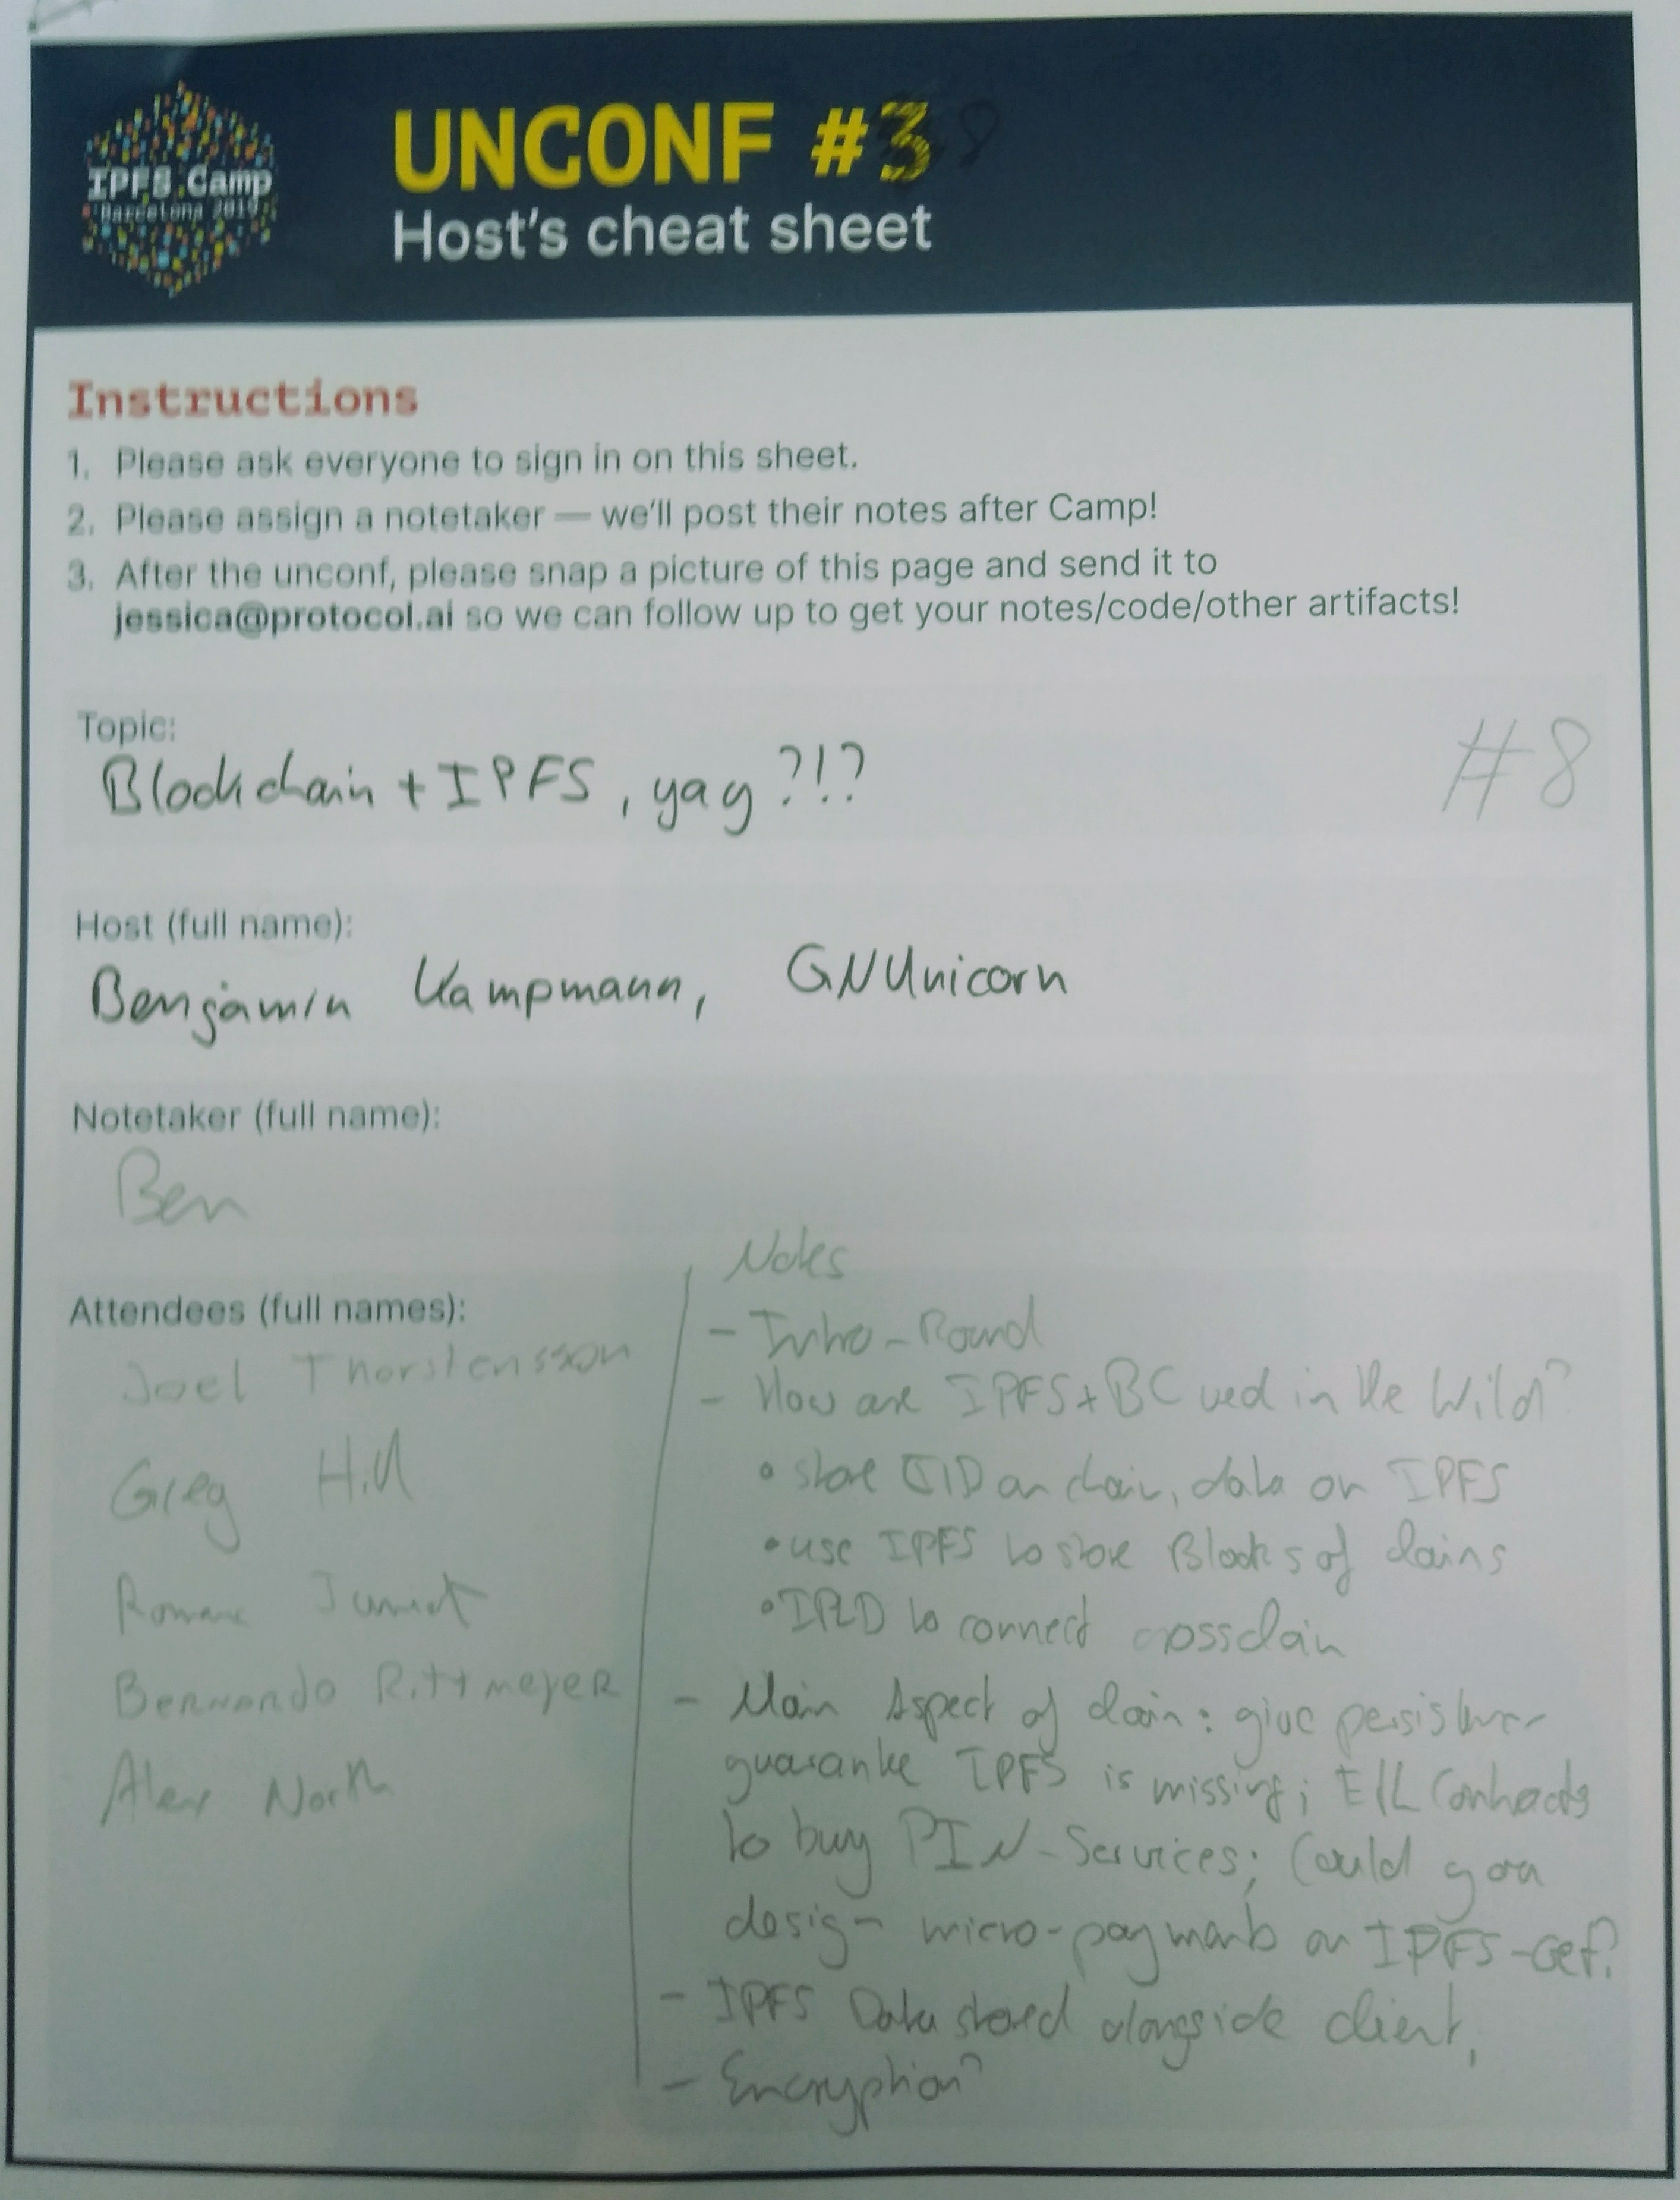 IPFS Camp
Barcelona 2019
UNCONF #3 8
Host's cheat sheet
Instructions
1. Please ask everyone to sign in on this sheet.
2. Please assign a notetaker — we'll post their notes after Camp!
3. After the unconf, please snap a picture of this page and send it to
jessica@protocol.ai so we can follow up to get your notes/code/other artifacts!
Topic:
#8
Blockchain + IPFS, yay ?!?
Host (full name):
Benjamin Kampmann, GNUnicorn
Notetaker (full name):
Ben
Attendees (full names):
Joel Thorstensson
Greg Hill
Bernardo Rittmeyer
Alex North
Notes
- Intro-Round
- How are IPFS+BC used in the Wild?
• store CID on chain, data on IPFS
• use IPFS to store Blocks of chains
• IPLD to connect crosschain
- Main Aspect of chain: give persistence
guarantee IPFS is missing; Contracts
to buy PIN-Services; Could you
design micro-payments on IPFS-Get?
- IPFS Data stored alongside client,
- Encryption?